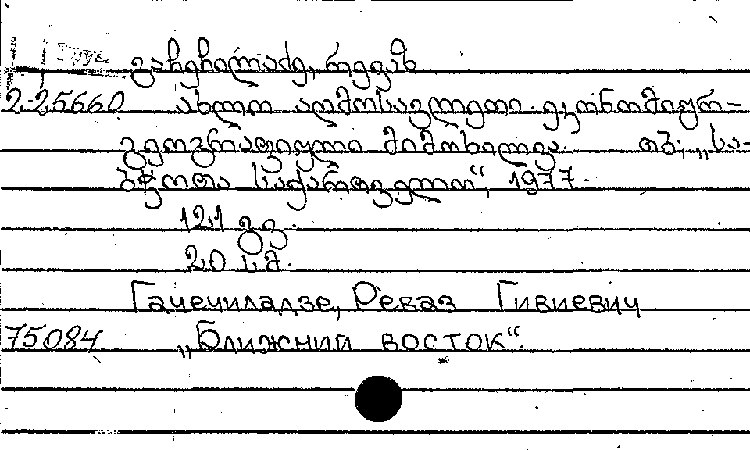 Груз
გაჩეჩილაძე, რევაზ
2-25660 ახლო აღმოსავლეთი. ეკონომიურ-
გეოგრაფიული მიმოხილვა. თბ., „სა-
ბჭოთა საქართველო“, 1977.
121 გვ.
20 სმ.
Гачечиладзе, Реваз Гивиевич
75084 „Ближний восток“.